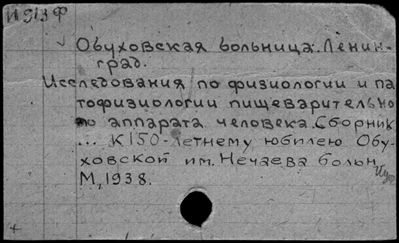 И 913 Ф
Обуховская больница. Ленин-
град.
Исследования по физиологии и па
тофизиологии пищеварительно
го аппарата человека. Сборник
... К 150-летнему юбилею Обу-
ховской им. Нечаева больн
М, 1938.